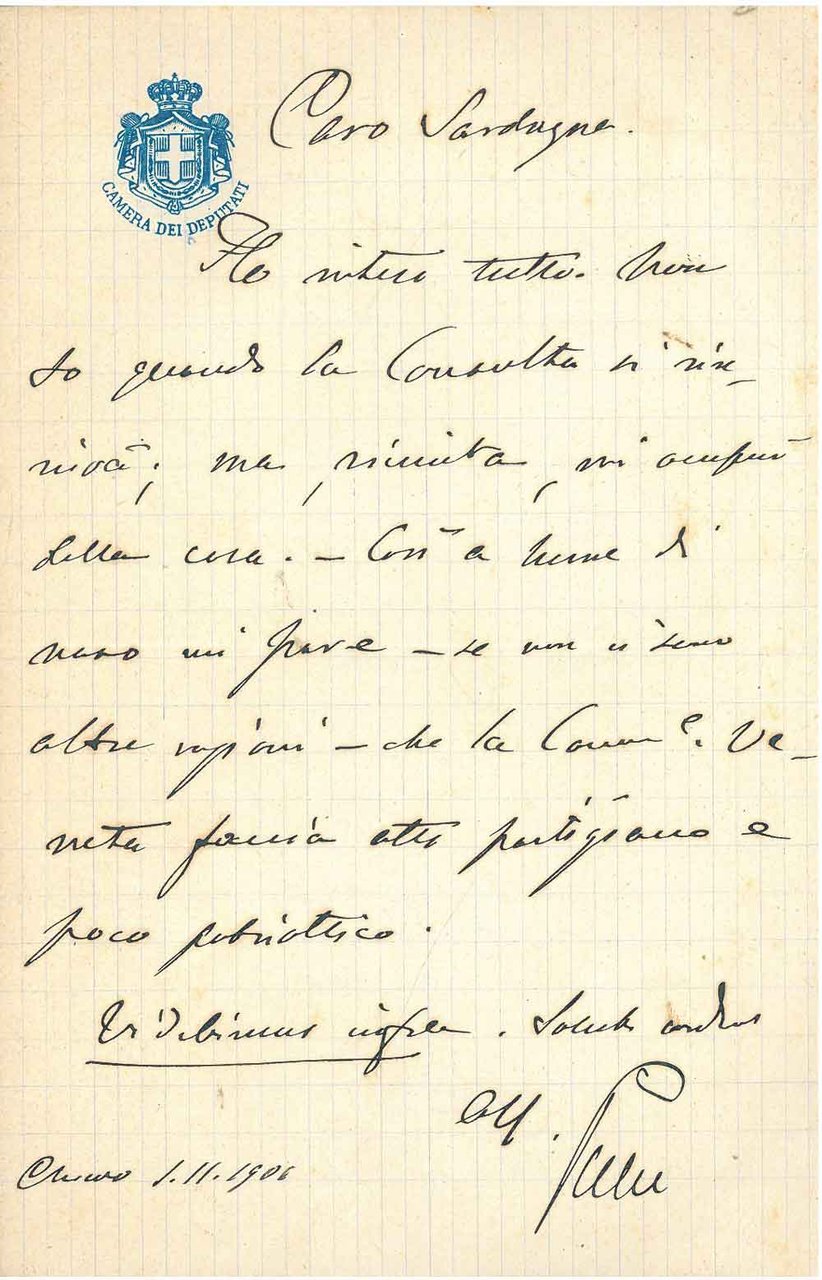 CAMERA DEI DEPUTATI
Caro Sardagna.
Ho inteso tutto. Non
so quando la Consulta si riu-
nirà; ma, riunita, mi occuperò
della cosa. – Così a lume di
naso mi pare – se non ci sono
altre ragioni – che la Comm.e Ve-
neta faccia atto partigiano e
poco patriottico.
Videbimus infra. Saluti cordiali
aff.
1.11.190